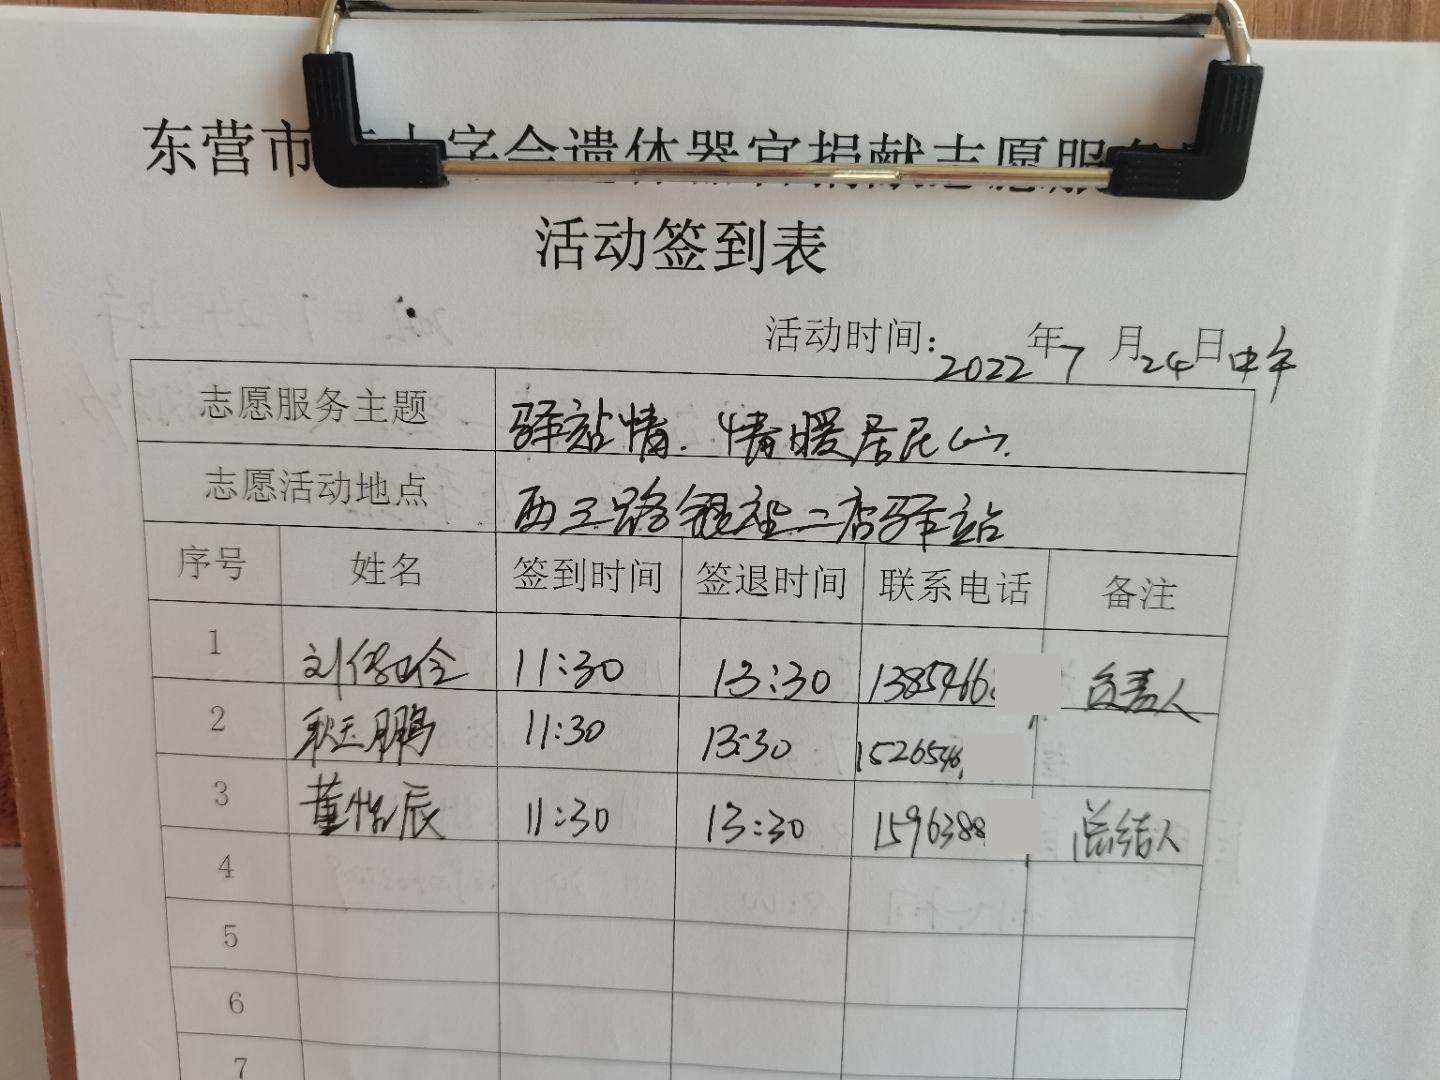 东营市红十字会遗体器官捐献志愿服务
活动签到表
活动时间：2022年7月24日中午
志愿服务主题 驿站情.情暖居民心.
志愿活动地点 西三路银座二店驿站
序号 姓名 签到时间 签退时间 联系电话 备注
1 刘 11:30 13:30 1385466 负责人
2 耿玉鹏 11:30 13:30 1526546
3 董怡辰 11:30 13:30 1596388 总结人
4
5
6
7